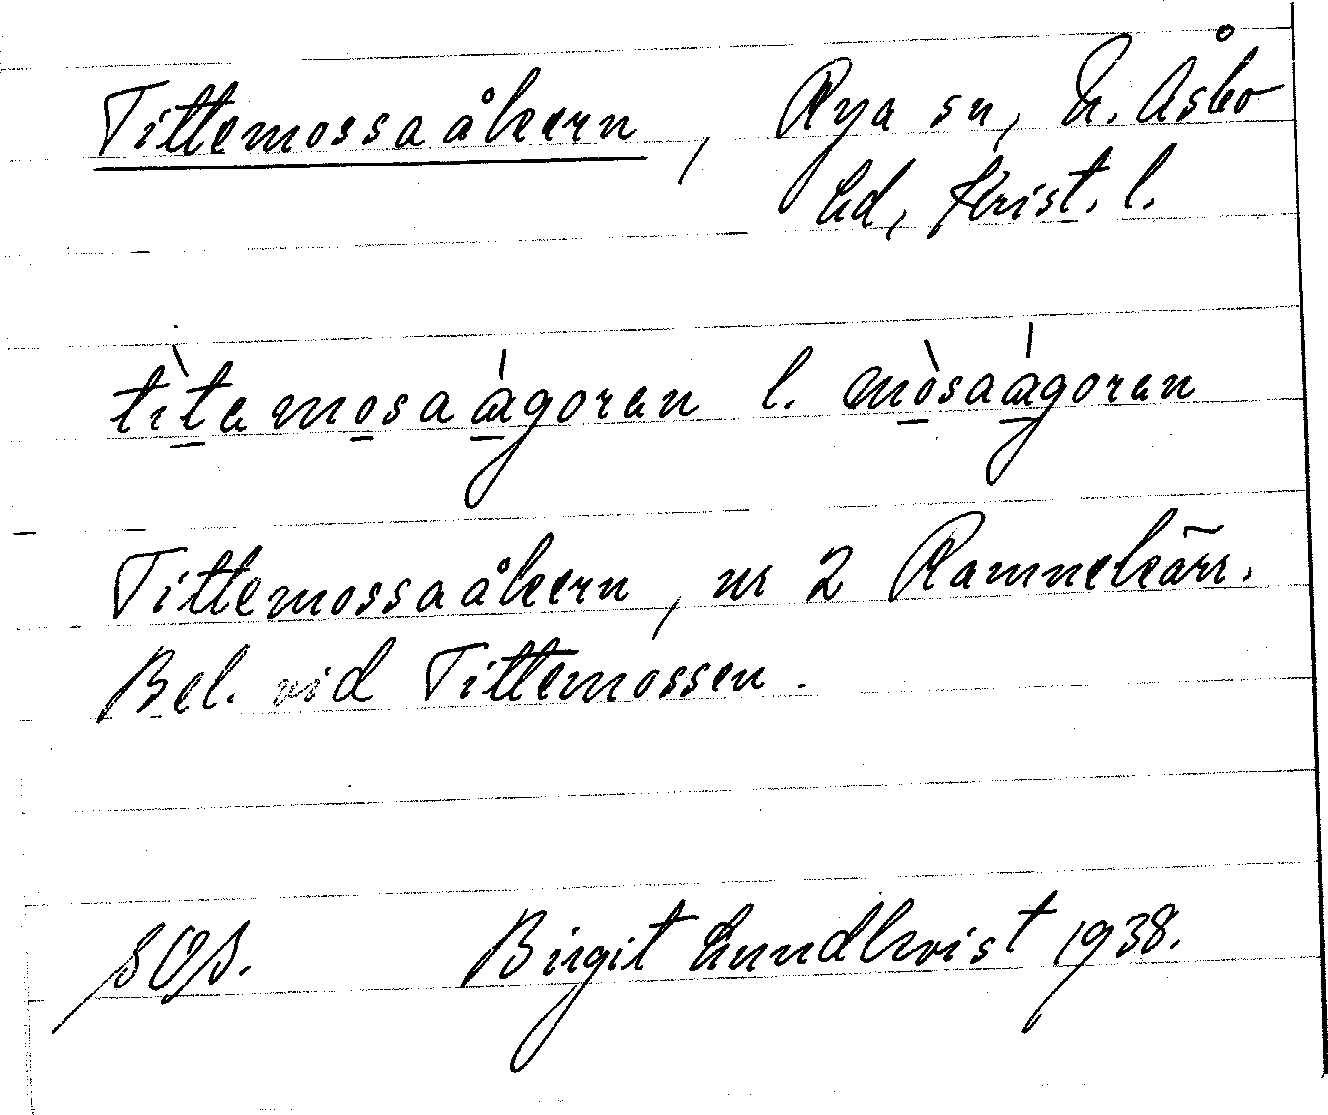 Tittemossaåkern, Rya sn, N. Åsbo
hd, Krist. l.
tìtemosaágoren l. mòsaágoren
Tittemossaåkern, nr 2 Ramnekärr.
Bel. vid Tittemossen.
SOS. Birgit Lundkvist 1938.